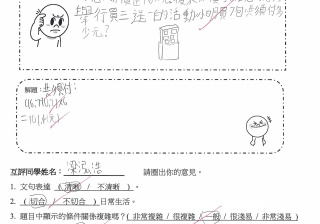 舉行買三送一的活動小明買7包共須付多
少元?
解題:共須付:
=101.4(元)
互評同學姓名: 請圈出你的意見。
1. 文句表達 ( 清晰 / 不清晰 )。
2. ( 切合 / 不切合 ) 日常生活。
3. 題目中顯示的條件關係複雜嗎? ( 非常複雜 / 很複雜 / 一般 / 很淺易 / 非常淺易 )